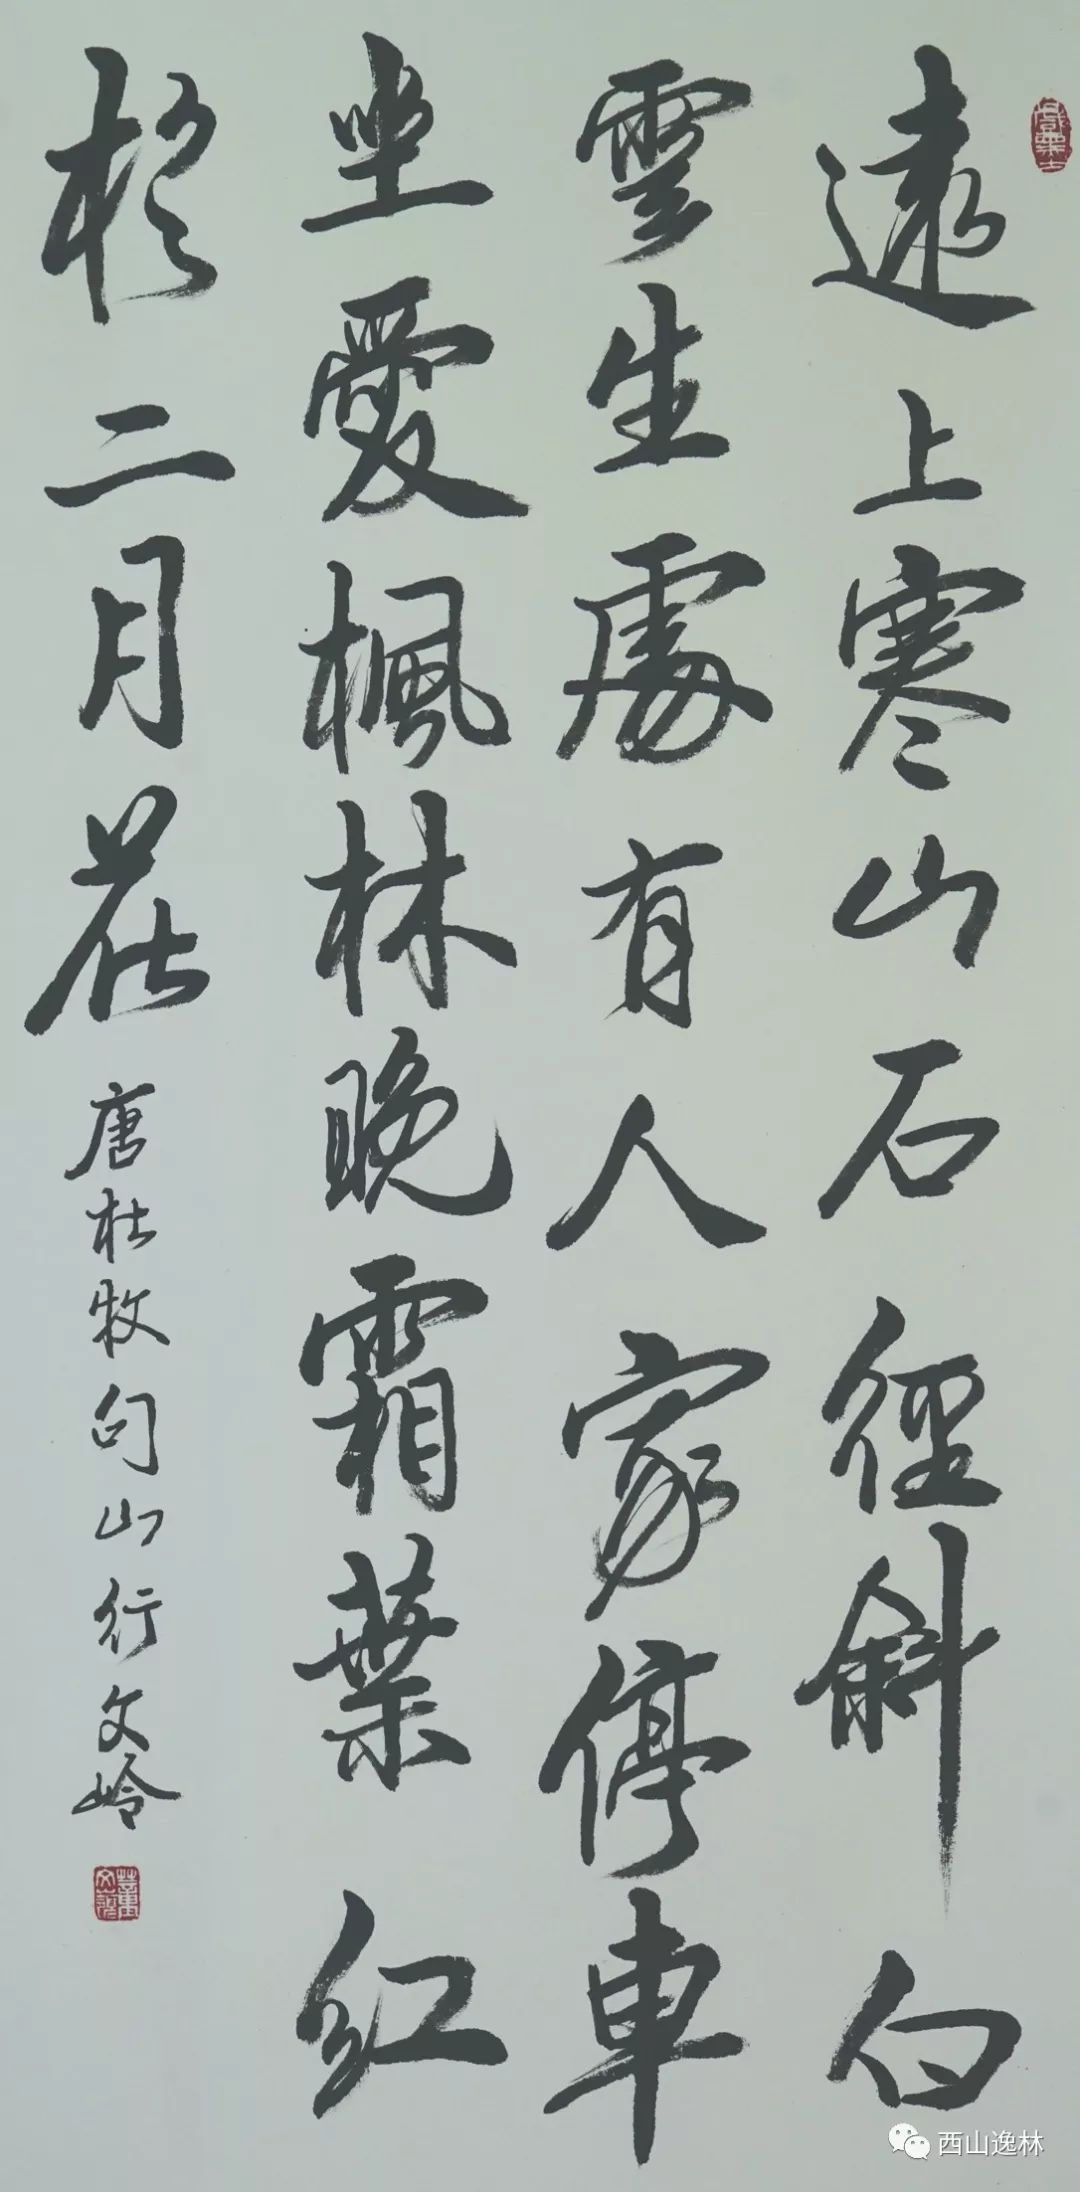 遠上寒山石徑斜白
雲生處有人家停車
坐愛楓林晚霜葉紅
於二月花
唐杜牧句山行文嶺
董文嶺
西山逸林